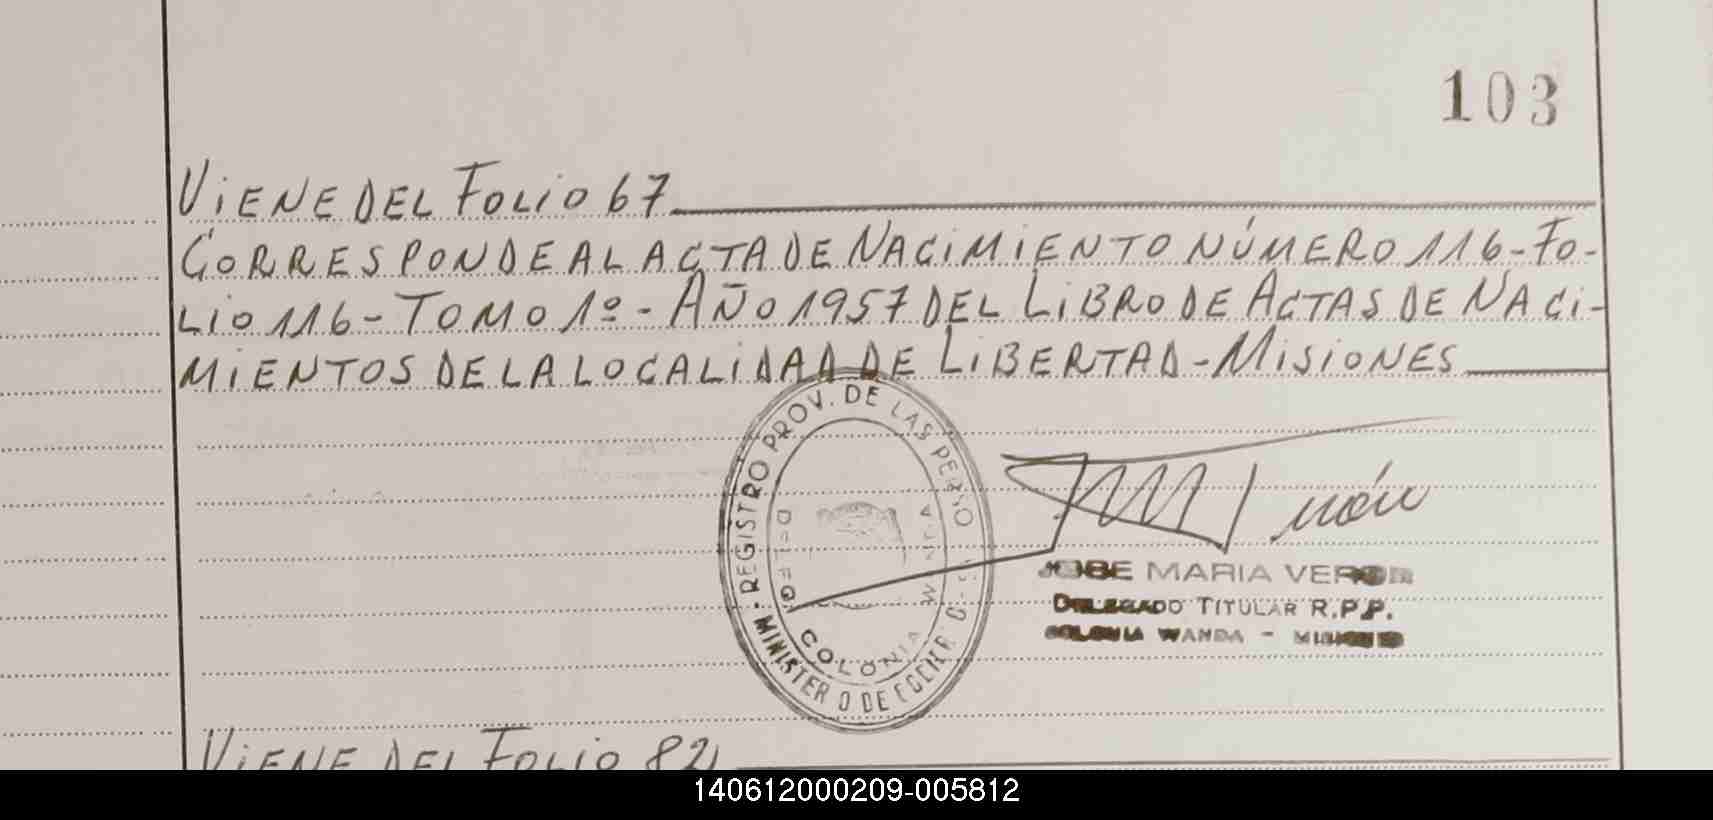 103
VIENE DEL FOLIO 67
CORRESPONDE AL ACTA DE NACIMIENTO NÚMERO 116 - FO-
LIO 116 - TOMO 1º - AÑO 1957 DEL LIBRO DE ACTAS DE NACI-
MIENTOS DE LA LOCALIDAD DE LIBERTAD - MISIONES
REGISTRO PROV. DE LAS PERSO
COLONIA WANDA
MINISTERIO DE
JOSE MARIA VERON
DELEGADO TITULAR R.P.P.
COLONIA WANDA - MISIONES
VIENE DEL FOLIO 82
140612000209-005812